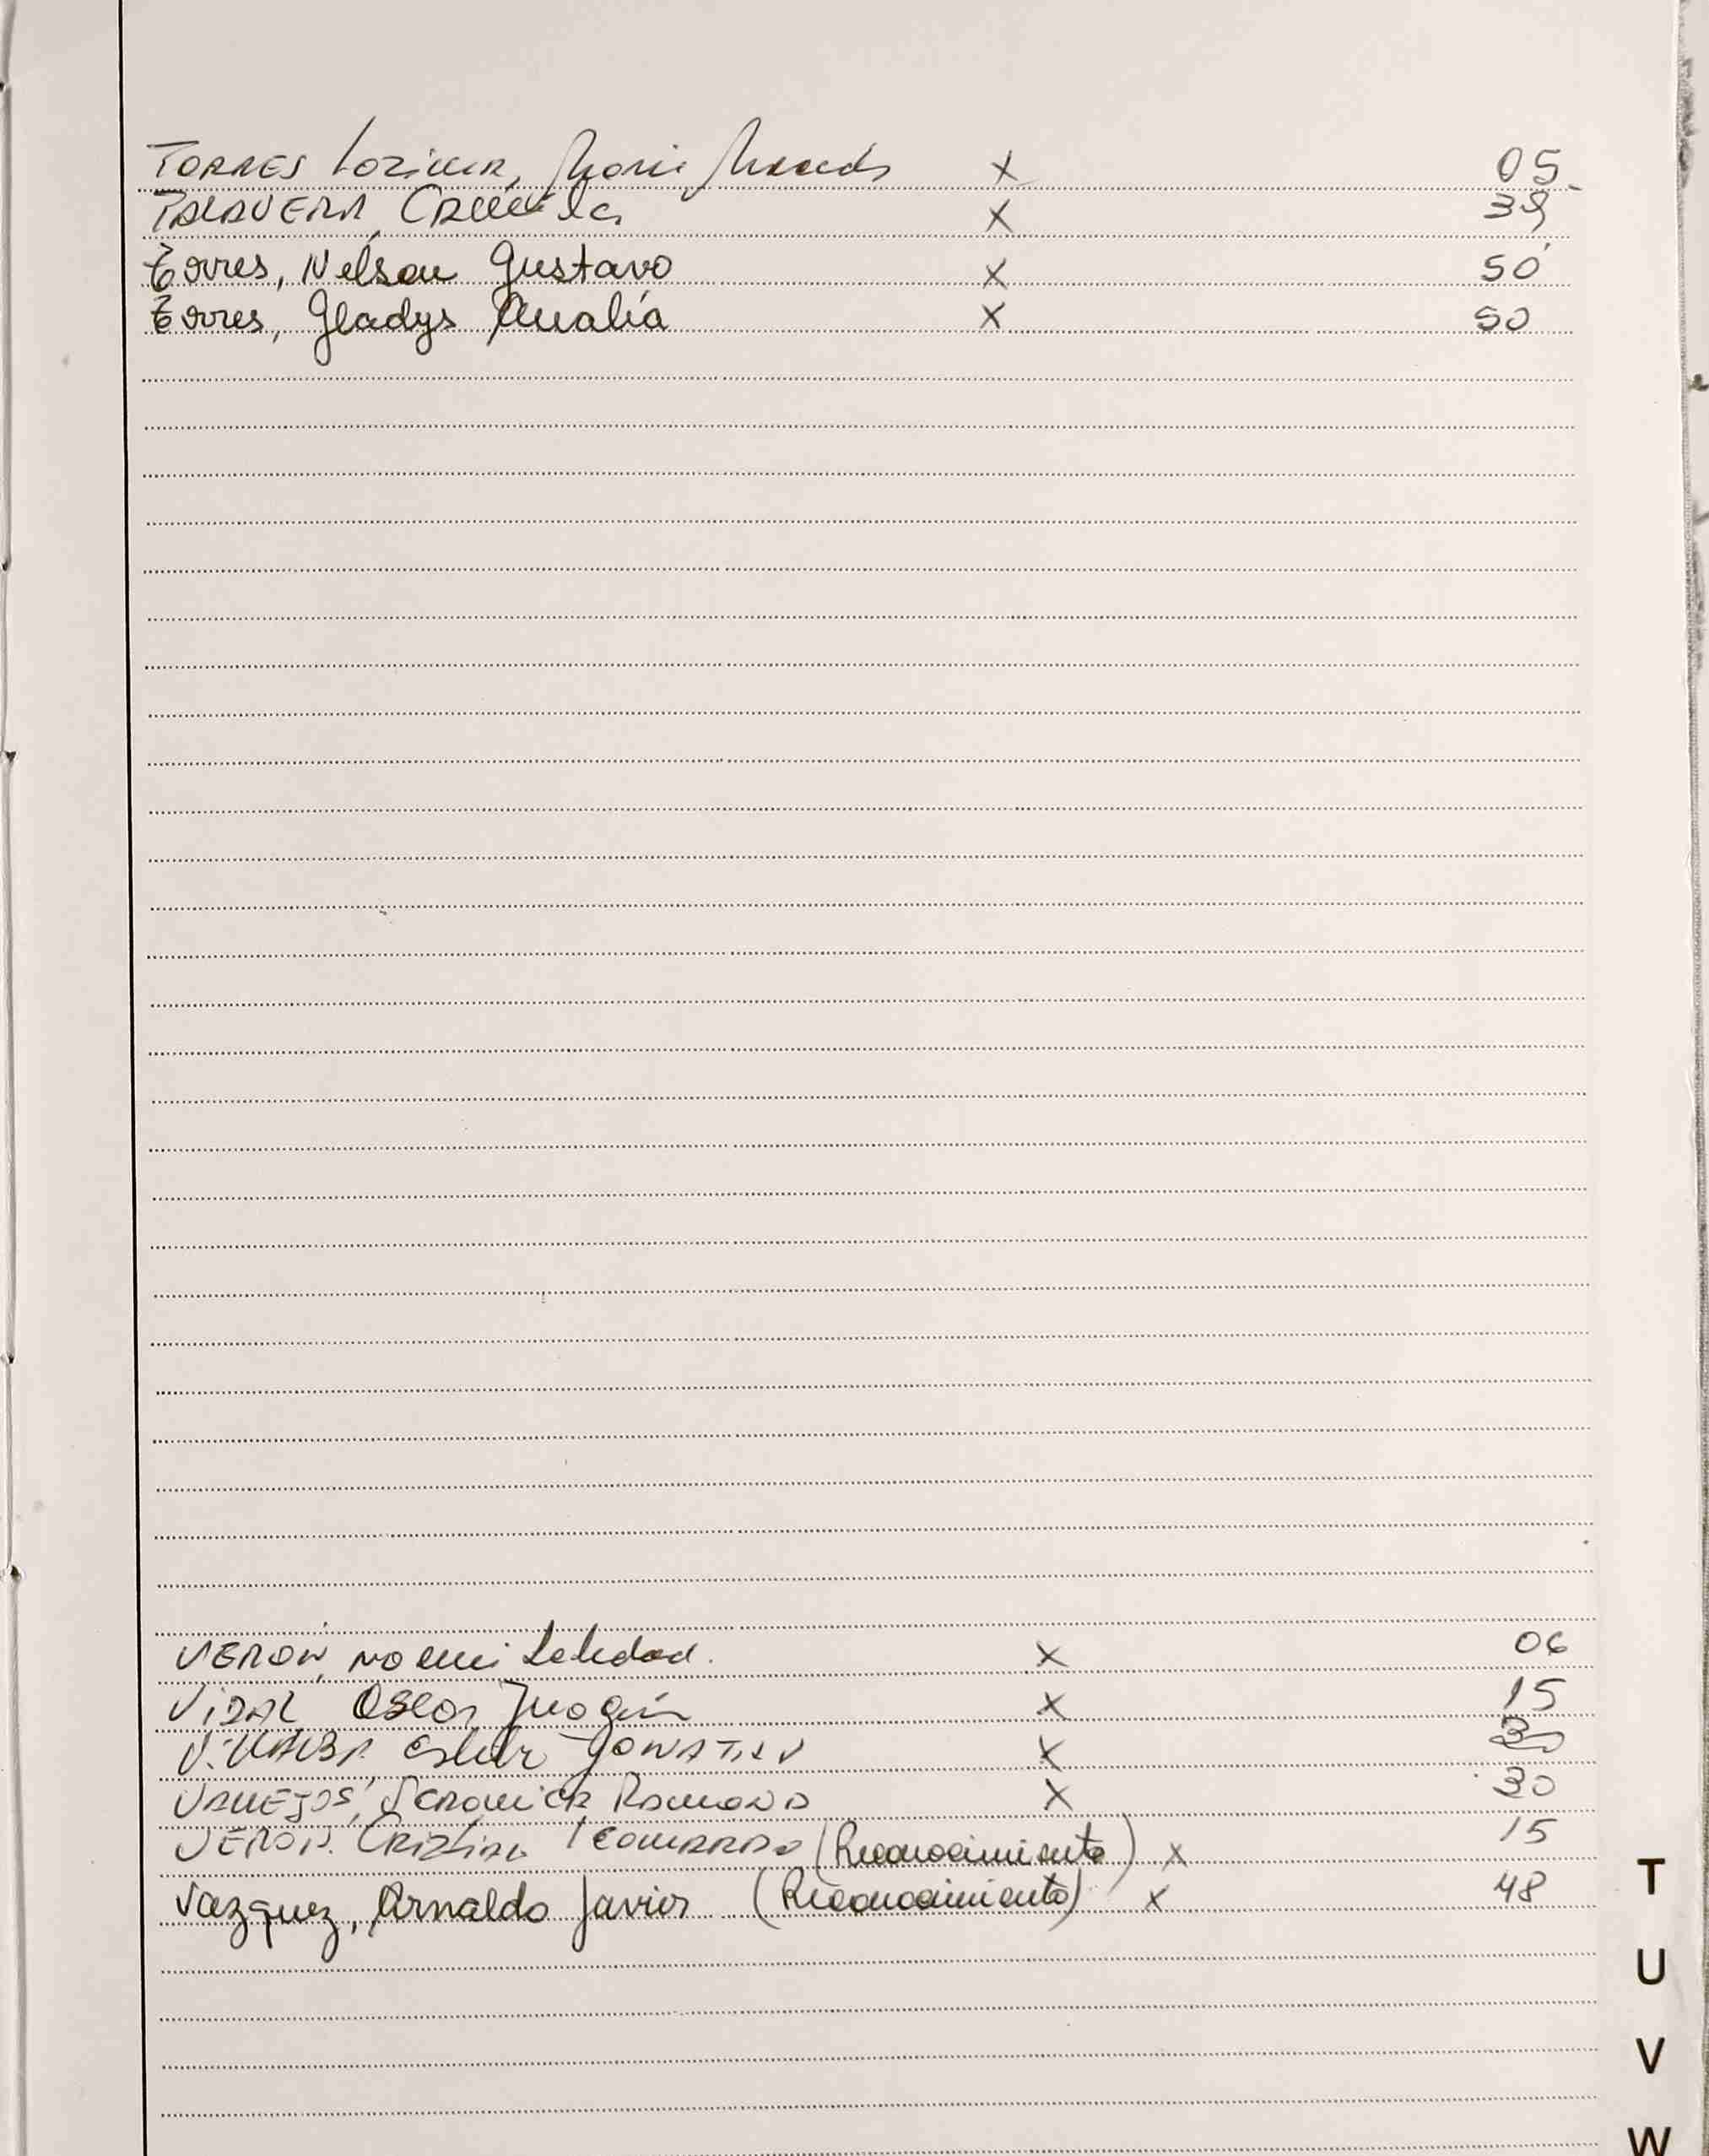 TORRES X 05
TALAVERA, Camila X 39
Torres, Nelson Gustavo X 50
Torres, Gladys Analía X 50
VERON, Noemi Soledad. X 06
VIDAL Oscar Joaquín X 15
JONATAN X 30
VALLEJOS, Veronica Ramona X 30
VERON. Cristian Leonardo (Reconocimiento) X 15
Vazquez, Arnaldo Javier (Reconocimiento) X 48
T
U
V
W